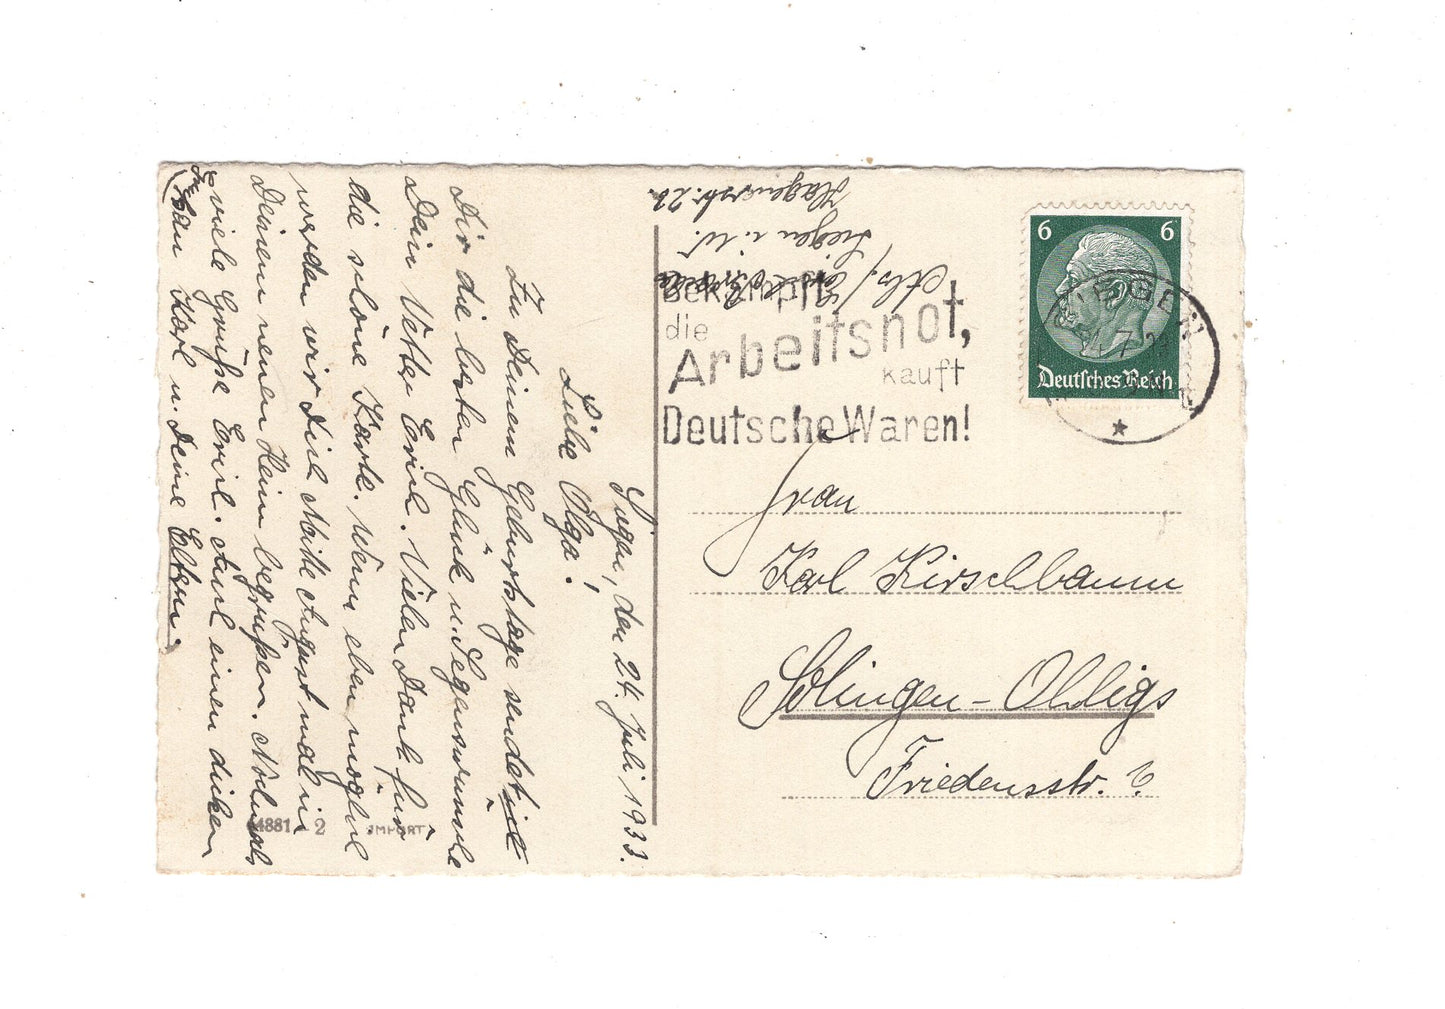 Siegen, den 24. Juli 1933.
Liebe Olga!
Zu Deinem Geburtstage sendet
Dir die besten Glück u. Segenswünsche
Dein Vetter Erich. Vielen Dank für
die schöne Karte. Wenn eben möglich
werden wir Dich Mitte August mal in
Deinem neuen Heim begrüßen. Nochmals
viele Grüße Erich. Auch einen dicken
an Karl u. Deine Eltern.
44881 - 2 IMPORT
Abs./
Siegen i. W.
Hagenerstr. 23
Bekämpft
die
Arbeitsnot,
kauft
Deutsche Waren!
6 6
Deutsches Reich
SIEGEN
Frau
Karl Kirschbaum
Solingen-Ohligs
Friedensstr. 6